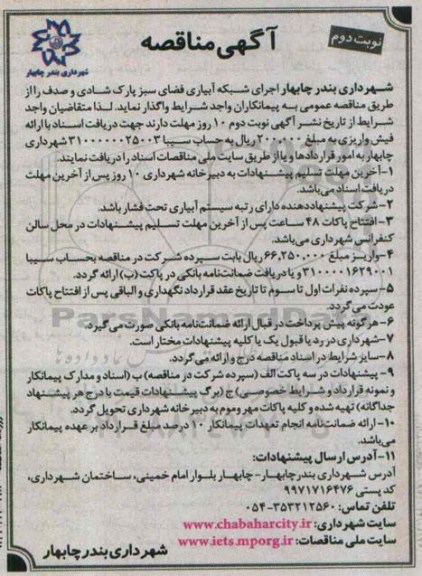 نوبت دوم
آگهی مناقصه
شهرداری بندر چابهار
شهرداری بندر چابهار اجرای شبکه آبیاری فضای سبز پارک شادی و صدف را از
طریق مناقصه عمومی به پیمانکاران واجد شرایط واگذار نماید. لذا متقاضیان واجد
شرایط از تاریخ نشر آگهی نوبت دوم ۱۰ روز مهلت دارند جهت دریافت اسناد با ارائه
فیش واریزی به مبلغ ۲۰۰۰،۰۰۰ ریال به حساب سیبا ۳۱۰۰۰۰۰۰۲۵۰۰۳ شهرداری
چابهار به امور قراردادها و یا از طریق سایت ملی مناقصات اسناد را دریافت نمایند.
۱-آخرین مهلت تسلیم پیشنهادات به دبیرخانه شهرداری ۱۰ روز پس از آخرین مهلت
دریافت اسناد می‌باشد.
۲-شرکت پیشنهاددهنده دارای رتبه سیستم آبیاری تحت فشار باشد.
۳-افتتاح پاکات ۴۸ ساعت پس از آخرین مهلت تسلیم پیشنهادات در محل سالن
کنفرانس شهرداری می‌باشد.
۴-واریز مبلغ ۶۶،۲۵۰،۰۰۰ ریال بابت سپرده شرکت در مناقصه بحساب سیبا
۳۱۰۰۰۰۱۶۲۹۰۰۱ و یا دریافت ضمانت‌نامه بانکی در پاکت (ب) ارائه گردد.
۵-سپرده نفرات اول تا سوم تا تاریخ عقد قرارداد نگهداری و الباقی پس از افتتاح پاکات
عودت می‌گردد.
۶-هرگونه پیش پرداخت در قبال ارائه ضمانت‌نامه بانکی صورت می‌گیرد.
۷-شهرداری در رد یا قبول یک یا کلیه پیشنهادات مختار است.
۸-سایر شرایط در اسناد مناقصه درج و ارائه می‌گردد.
۹- پیشنهادات در سه پاکت الف (سپرده شرکت در مناقصه) ب (اسناد و مدارک پیمانکار
و نمونه قرارداد و شرایط خصوصی) ج (برگ پیشنهادات قیمت با درج هر پیشنهاد
جداگانه) تهیه شده و کلیه پاکات مهر و موم به دبیرخانه شهرداری تحویل گردد.
۱۰- ارائه ضمانت‌نامه انجام تعهدات پیمانکار ۱۰ درصد مبلغ قرارداد بر عهده پیمانکار
می‌باشد.
۱۱-آدرس ارسال پیشنهادات:
آدرس شهرداری بندر چابهار- چابهار بلوار امام خمینی، ساختمان شهرداری،
کد پستی ۹۹۷۱۷۱۶۴۷۶
تلفن تماس: ۳۵۳۲۱۲۵۶۰-۰۵۴
سایت شهرداری: www.chabaharcity.ir
سایت ملی مناقصات: www.iets.mporg.ir
شهرداری بندر چابهار
ParsNamadData